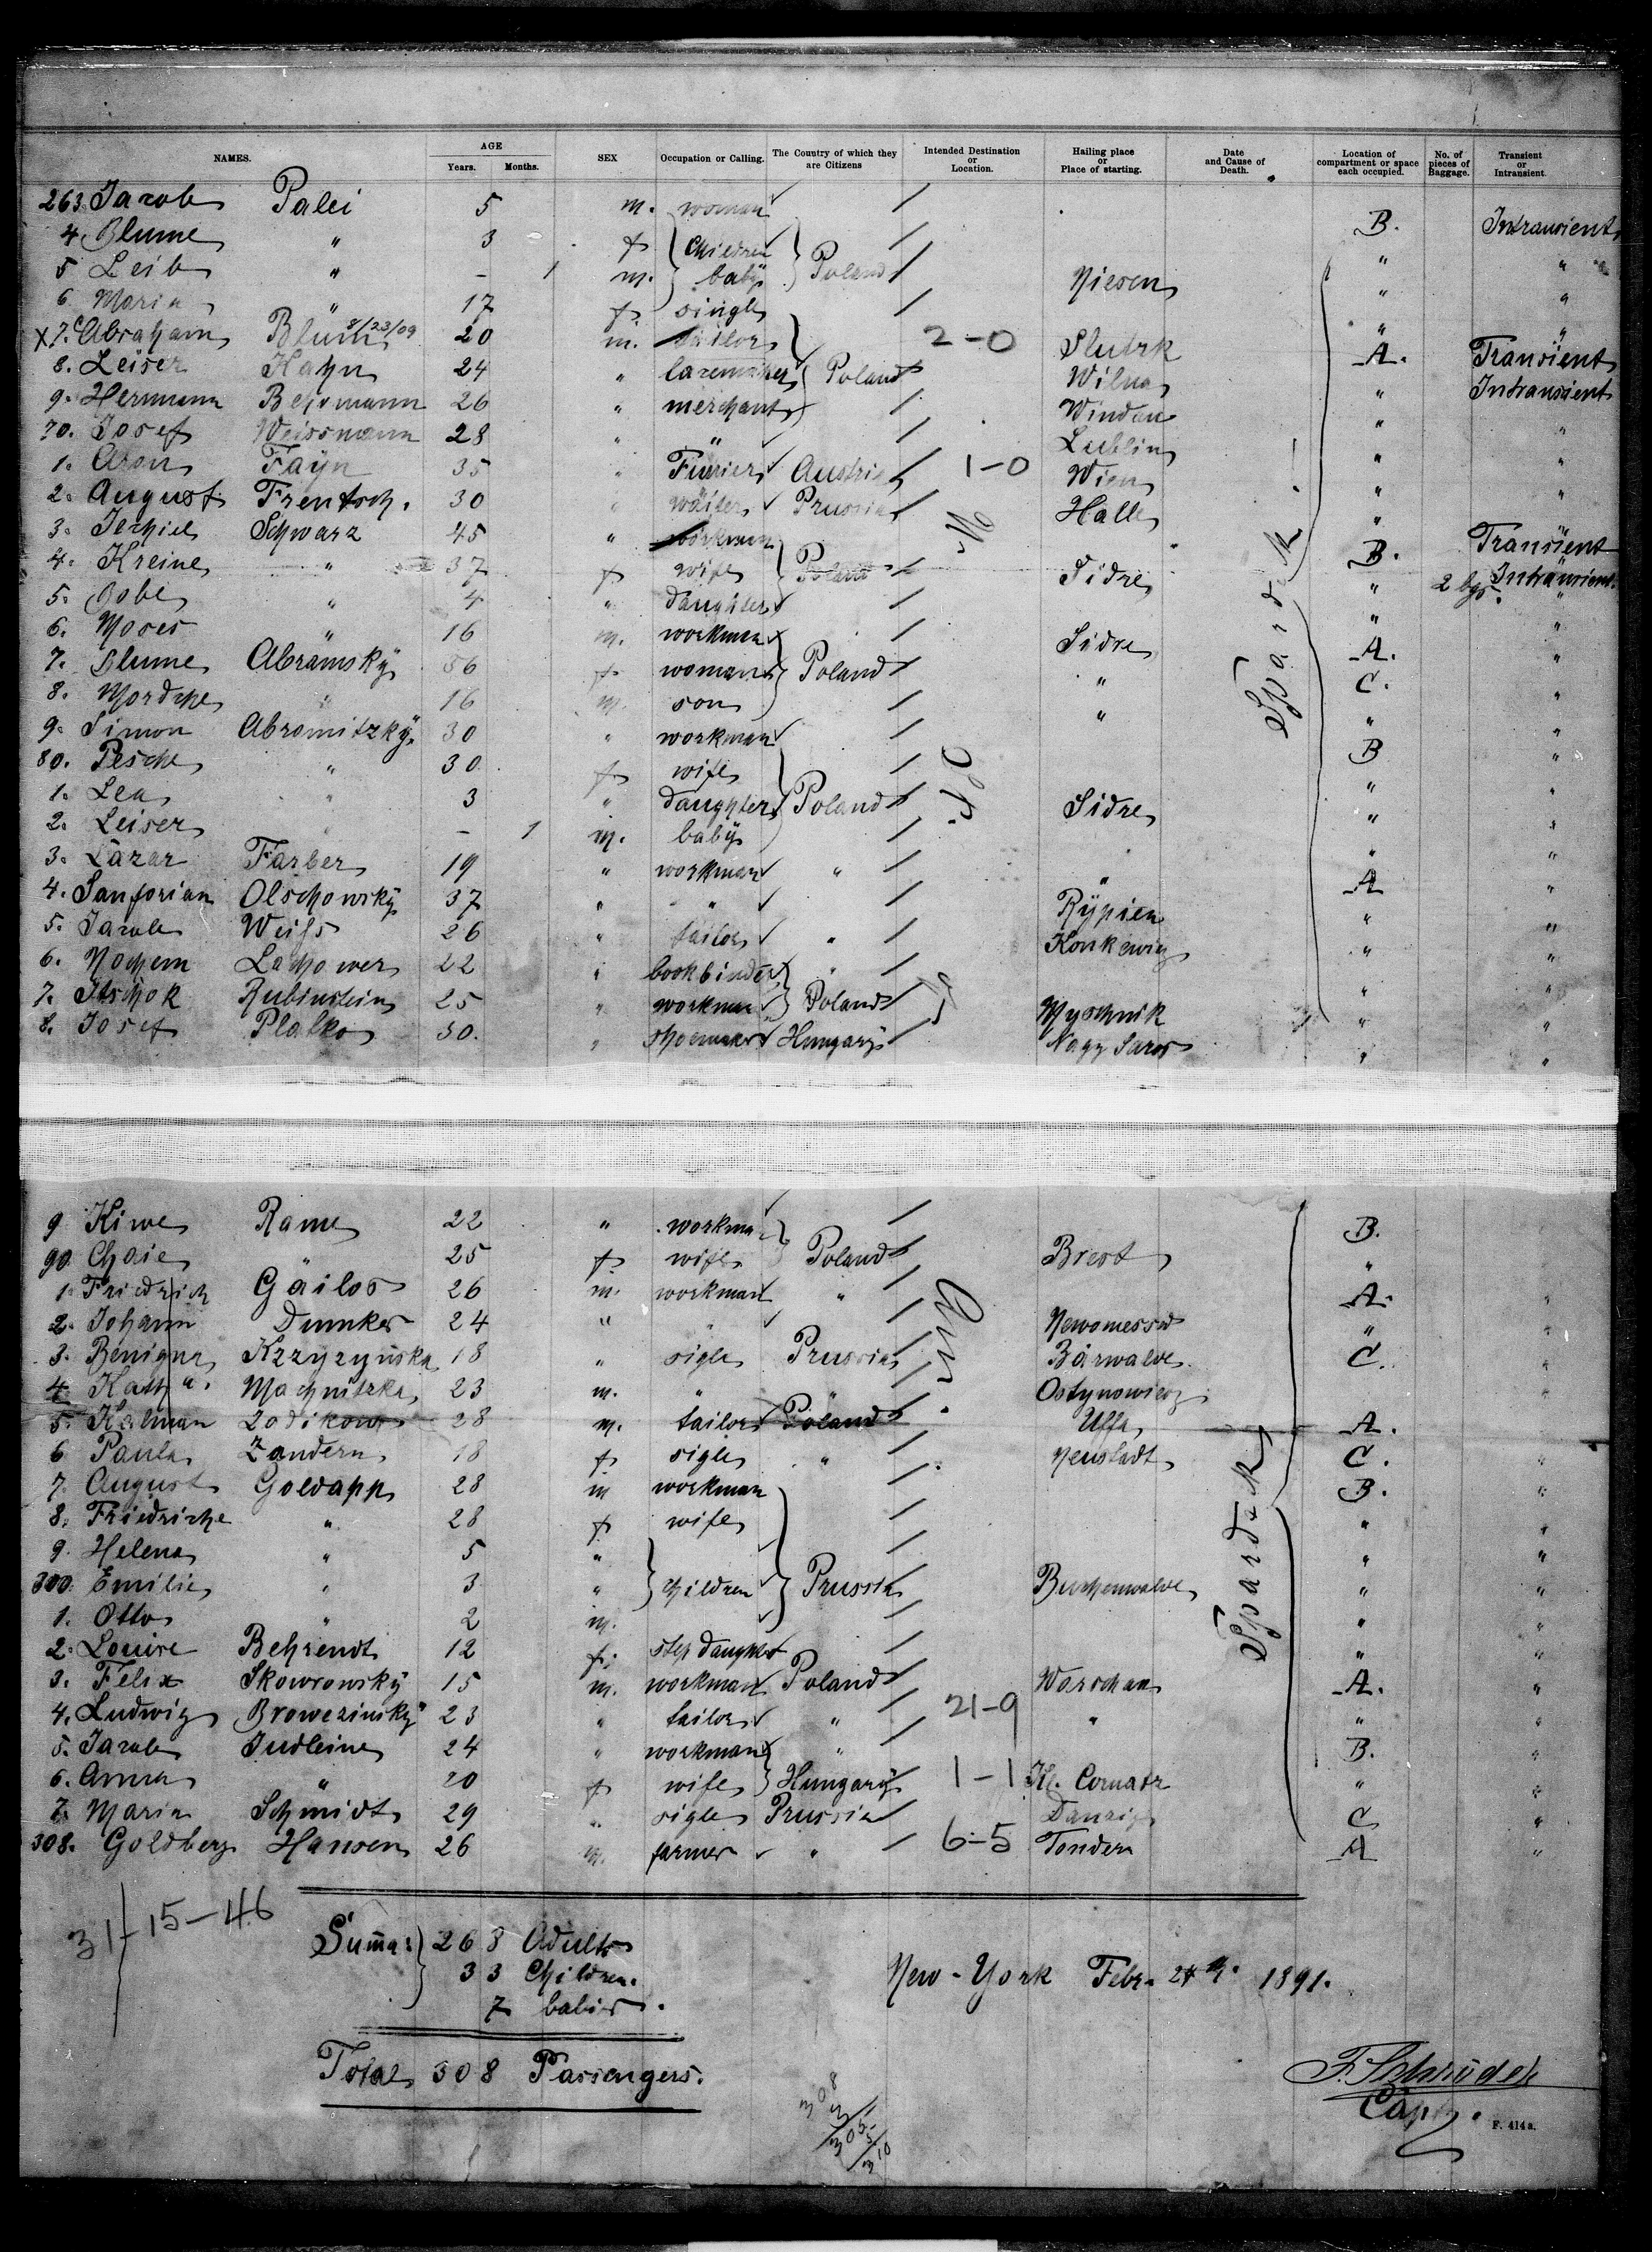 NAMES. AGE Years. Months. SEX Occupation or Calling. The Country of which they are Citizens Intended Destination or Location. Hailing place or Place of starting. Date and Cause of Death. Location of compartment or space each occupied. No. of pieces of Baggage. Transient or Intransient.
263 Jacob Palei 5 m. woman
4 Blume " 3 f children B. Intransient
5 Leib " – 1 m. baby Poland Niesen " "
6. Maria " 17 f single " "
x7. Abraham Blum 8/23/09 20 m. tailor 2–0 Slutzk " "
8. Leiser Kahn 24 " Poland Wilna A. Transient
9. Hermann Behrmann 26 " merchant Windau " Intransient
70. Josef Weissmann 28 " " Lublin " "
1. Aron Fayn 35 " Furier Austria 1–0 Wien " "
2. August Frentsch. 30 " waiter Prussia Halle " "
3. Schwarz 45 " workman " Transient
4. Kreine " 37 f wife Poland Sidre B. Intransient
5. " 4 " daughter " 2 bgs. "
6. Moses " 16 m. workman Sidre " "
7. Blume Abramsky 56 f woman Poland " A. "
8. Mordche " 16 m. son " C. "
9. Simon Abramitzky 30 " workman " "
80. Pesche " 30. f wife B "
1. Lea " 3 " daughter Poland Sidre " "
2. Leiser " – 1 m. baby " "
3. Lazar Farber 19 " workman " " " "
4. Olschowsky 37 " " Rypien A "
5. Jacob Weiss 26 " tailor " " "
6. Nochem Lachower 22 " bookbinder " " "
7. Itschok Rubinstein 25 " workman Poland Wyschnik " "
8. Josef Platko 30. " shoemaker Hungary Nagy Saros " "
9 Kiwe Rame 22 " workman B.
90. Chaie " 25 f wife Poland Brest "
1. Friedrich Gailos 26 m. workman " A. "
2. Johann Dumker 24 " " " "
3. Benigna Krzyzynska 18 " sigle Prussia Bärwalde C. "
4. Kath a. Machnitzka 23 m. " "
5. Kalman Zodikow 28 m. tailor Poland Uffa A. "
6 Paula Zandern 18 f sigle " Neustadt C. "
7. August Goldapp 28 m workman B. "
8. Friedriche " 28 f wife " "
9. Helena " 5 " " "
300. Emilie " 3 " children Prussia Buchenwalde " "
1. Otto " 2 m. " "
2. Louise Behrendt 12 f. step daughter " "
3. Felix Skowrowsky 15 m. workman Poland Warschau A. "
4. Ludwig Browezinsky 23 " tailor " 21–9 " " "
5. Jacob Judleine 24 " workman " B. "
6. Anna " 20 f wife Hungary 1–1 " "
7. Maria Schmidt 29 " sigle Prussia Danzig C "
308. Goldberg Hansen 26 m. farmer " 6–5 Tondern A "
31–15–46
Summa: 268 Adults
33 Children.
7 babies.
New-York Febr. 1891.
Total 308 Passengers.
F. Schröder
Capt.
F. 414a.
308
3
305
5
310